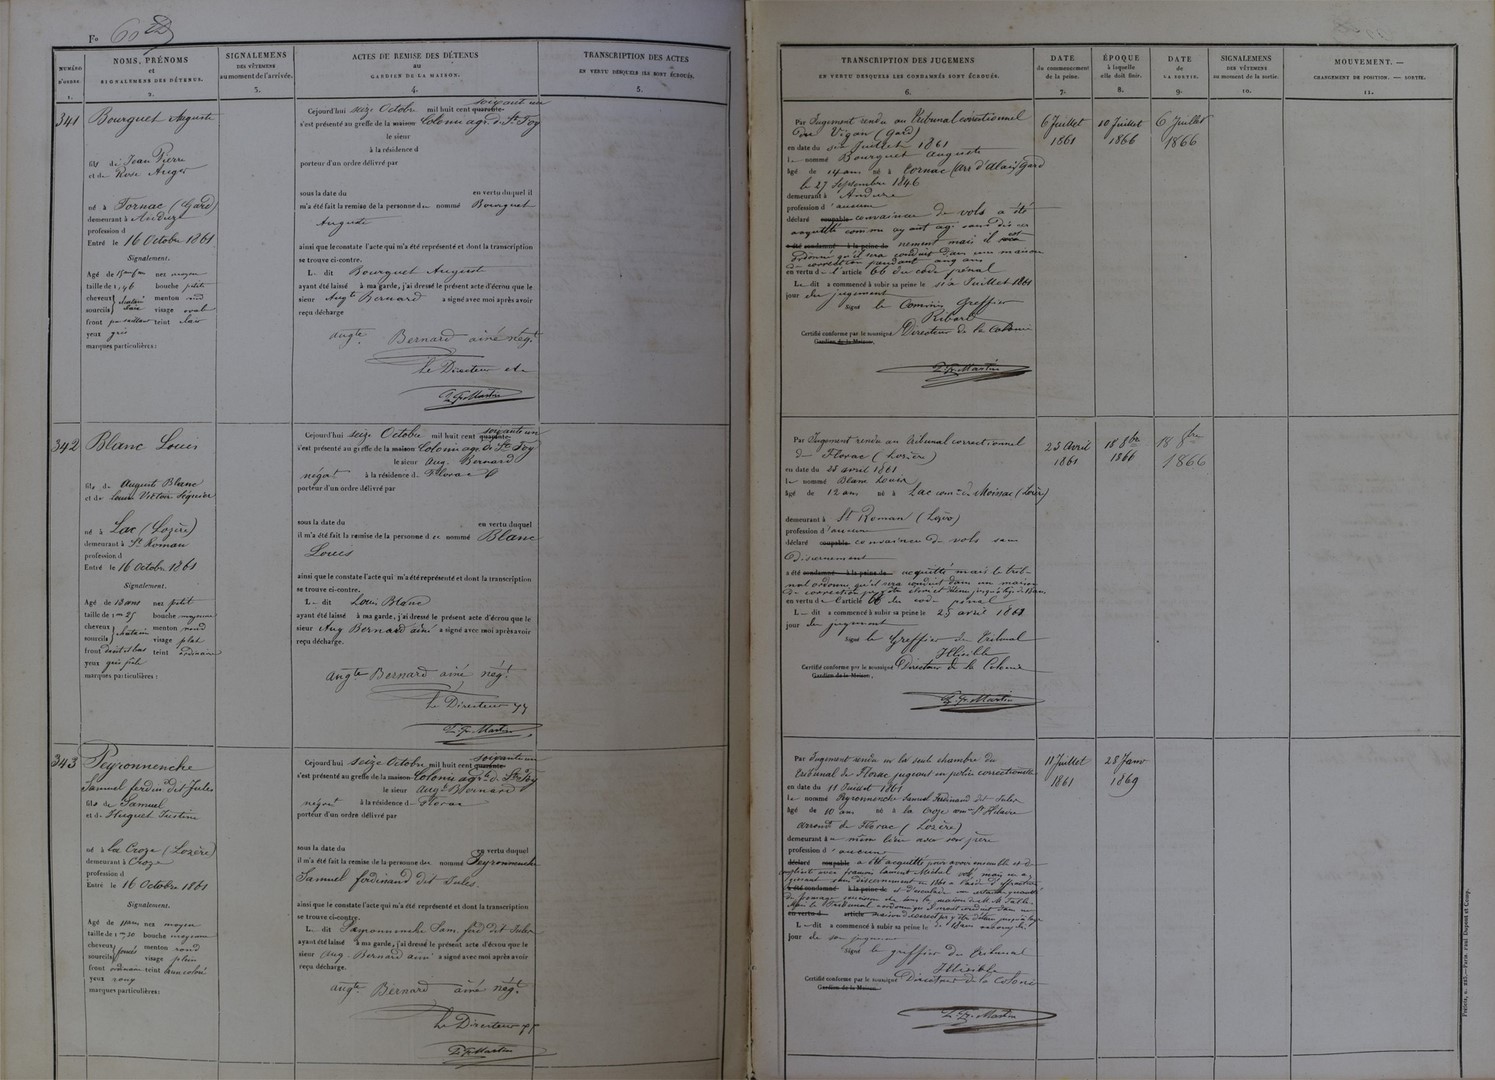 Fo 60
NUMÉRO D'ORDRE. 1.
NOMS, PRÉNOMS et SIGNALEMENS DES DÉTENUS. 2.
SIGNALEMENS DES VÊTEMENS au moment de l'arrivée. 3.
ACTES DE REMISE DES DÉTENUS au GARDIEN DE LA MAISON. 4.
TRANSCRIPTION DES ACTES EN VERTU DESQUELS ILS SONT ÉCROUÉS. 5.
TRANSCRIPTION DES JUGEMENS EN VERTU DESQUELS LES CONDAMNÉS SONT ÉCROUÉS. 6.
DATE du commencement de la peine. 7.
ÉPOQUE à laquelle elle doit finir. 8.
DATE de LA SORTIE. 9.
SIGNALEMENS DES VÊTEMENS au moment de la sortie. 10.
MOUVEMENT. — CHANGEMENT DE POSITION. — SORTIE. 11.
341
Bourguet Auguste
fils de Jean Pierre
et de Rose Auger
né à Tornac (Gard)
demeurant à Anduze
profession d
Entré le 16 Octobre 1861
Signalement.
Agé de nez moyen
taille de 1,46 bouche petite
cheveux menton rond
sourcils visage ovale
front teint clair
yeux gris
marques particulières :
Cejourd'hui seize Octobre mil huit cent quarante- soixante un
s'est présenté au greffe de la maison Colonie agr. de Ste Foy
le sieur
à la résidence d
porteur d'un ordre délivré par
sous la date du en vertu duquel il
m'a été fait la remise de la personne du nommé Bourguet
Auguste
ainsi que le constate l'acte qui m'a été représenté et dont la transcription
se trouve ci-contre.
Le dit Bourguet Auguste
ayant été laissé à ma garde, j'ai dressé le présent acte d'écrou que le
sieur Augte Bernard a signé avec moi après avoir
reçu décharge
Augte Bernard ainé négt
Le Directeur
Martin
Par Jugement rendu au Tribunal correctionnel
du Vigan (Gard)
en date du six Juillet 1861
le nommé Bourguet Auguste
âgé de 14 ans né à Tornac (Arr d'Alais) Gard
le 27 Septembre 1846
demeurant à Anduze
profession d'aucune
déclaré coupable convaincu de vols a été
acquitté comme ayant agi sans discer
a été condamné à la peine de nement mais il est
ordonné qu'il sera conduit dans une maison
de correction pendant cinq ans
en vertu de l'article 66 du code pénal
Le dit a commencé à subir sa peine le six Juillet 1861
jour du jugement
Signé le Commis Greffier
Ribard
Certifié conforme par le soussigné Directeur de la Colonie
Gardien de la Maison.
Martin
6 Juillet
1861
10 Juillet
1866
6 Juillet
1866
342
Blanc Louis
fils de Auguste Blanc
et de Louise Victoire Séguier
né à Lac (Lozère)
demeurant à St Roman
profession d
Entré le 16 Octobre 1861
Signalement.
Agé de 12 ans nez petit
taille de bouche moyenne
cheveux menton rond
sourcils châtain visage plat
front teint ordinaire
yeux gris
marques particulières :
Cejourd'hui seize Octobre mil huit cent quarante- soixante un
s'est présenté au greffe de la maison Colonie agr. de Ste Foy
le sieur Aug. Bernard
négort à la résidence de Florac
porteur d'un ordre délivré par
sous la date du en vertu duquel
il m'a été fait la remise de la personne d nommé Blanc
Louis
ainsi que le constate l'acte qui m'a été représenté et dont la transcription
se trouve ci-contre.
Le dit Louis Blanc
ayant été laissé à ma garde, j'ai dressé le présent acte d'écrou que le
sieur Aug Bernard ainé a signé avec moi après avoir
reçu décharge.
Augte Bernard ainé négt
Le Directeur
Martin
Par Jugement rendu au tribunal correctionnel
de Florac (Lozère)
en date du 25 avril 1861
le nommé Blanc Louis
âgé de 12 ans né à Lac de Moissac (Lozère)
demeurant à St Roman (Lozère)
profession d'aucune
déclaré coupable convaincu de vols sans
Discernement
a été condamné à la peine de acquitté mais le tribu-
nal ordonne qu'il sera conduit dans une maison
de correction
en vertu de l'article 66 du code pénal
Le dit a commencé à subir sa peine le 25 avril 1861
jour du jugement
Signé le Greffier du Tribunal
Illisible
Certifié conforme par le soussigné Directeur de la Colonie
Gardien de la Maison.
Martin
25 Avril
1861
18 8bre
1866
18 8bre
1866
343
Peyronnenche
Samuel ferdin dit Jules
fils de Samuel
et de Huguet Justine
né à la Croze (Lozère)
demeurant à Croze
profession d
Entré le 16 Octobre 1861
Signalement.
Agé de nez moyen
taille de bouche moyenne
cheveux menton rond
sourcils foncés visage plein
front ordinaire teint
yeux
marques particulières :
Cejourd'hui seize Octobre mil huit cent quarante- soixante un
s'est présenté au greffe de la maison Colonie agr. de Ste Foy
le sieur Augte Bernard
négort à la résidence de Florac
porteur d'un ordre délivré par
sous la date du en vertu duquel
il m'a été fait la remise de la personne de nommé Peyronnenche
Samuel ferdinand dit Jules
ainsi que le constate l'acte qui m'a été représenté et dont la transcription
se trouve ci-contre.
Le dit Peyronnenche Sam. ferd dit Jules
ayant été laissé à ma garde, j'ai dressé le présent acte d'écrou que le
sieur Aug. Bernard ainé a signé avec moi après avoir
reçu décharge.
Augte Bernard ainé négt
Le Directeur
Martin
Par Jugement rendu par la seule chambre du
tribunal de Florac jugeant en police correctionnelle
en date du 11 Juillet 1861
le nommé Peyronnenche Samuel Ferdinand dit Jules
âgé de 10 ans né à la Croze St Hilaire
arrondt de Florac (Lozère)
demeurant à même lieu avec son père
profession d'aucune
déclaré coupable a été acquitté
a été condamné à la peine de
en vertu d article
Le dit a commencé à subir sa peine le
jour de son jugement
Signé le greffier du tribunal
Illisible
Certifié conforme par le soussigné Directeur de la Colonie
Gardien de la Maison.
Martin
11 Juillet
1861
28 Janv
1869